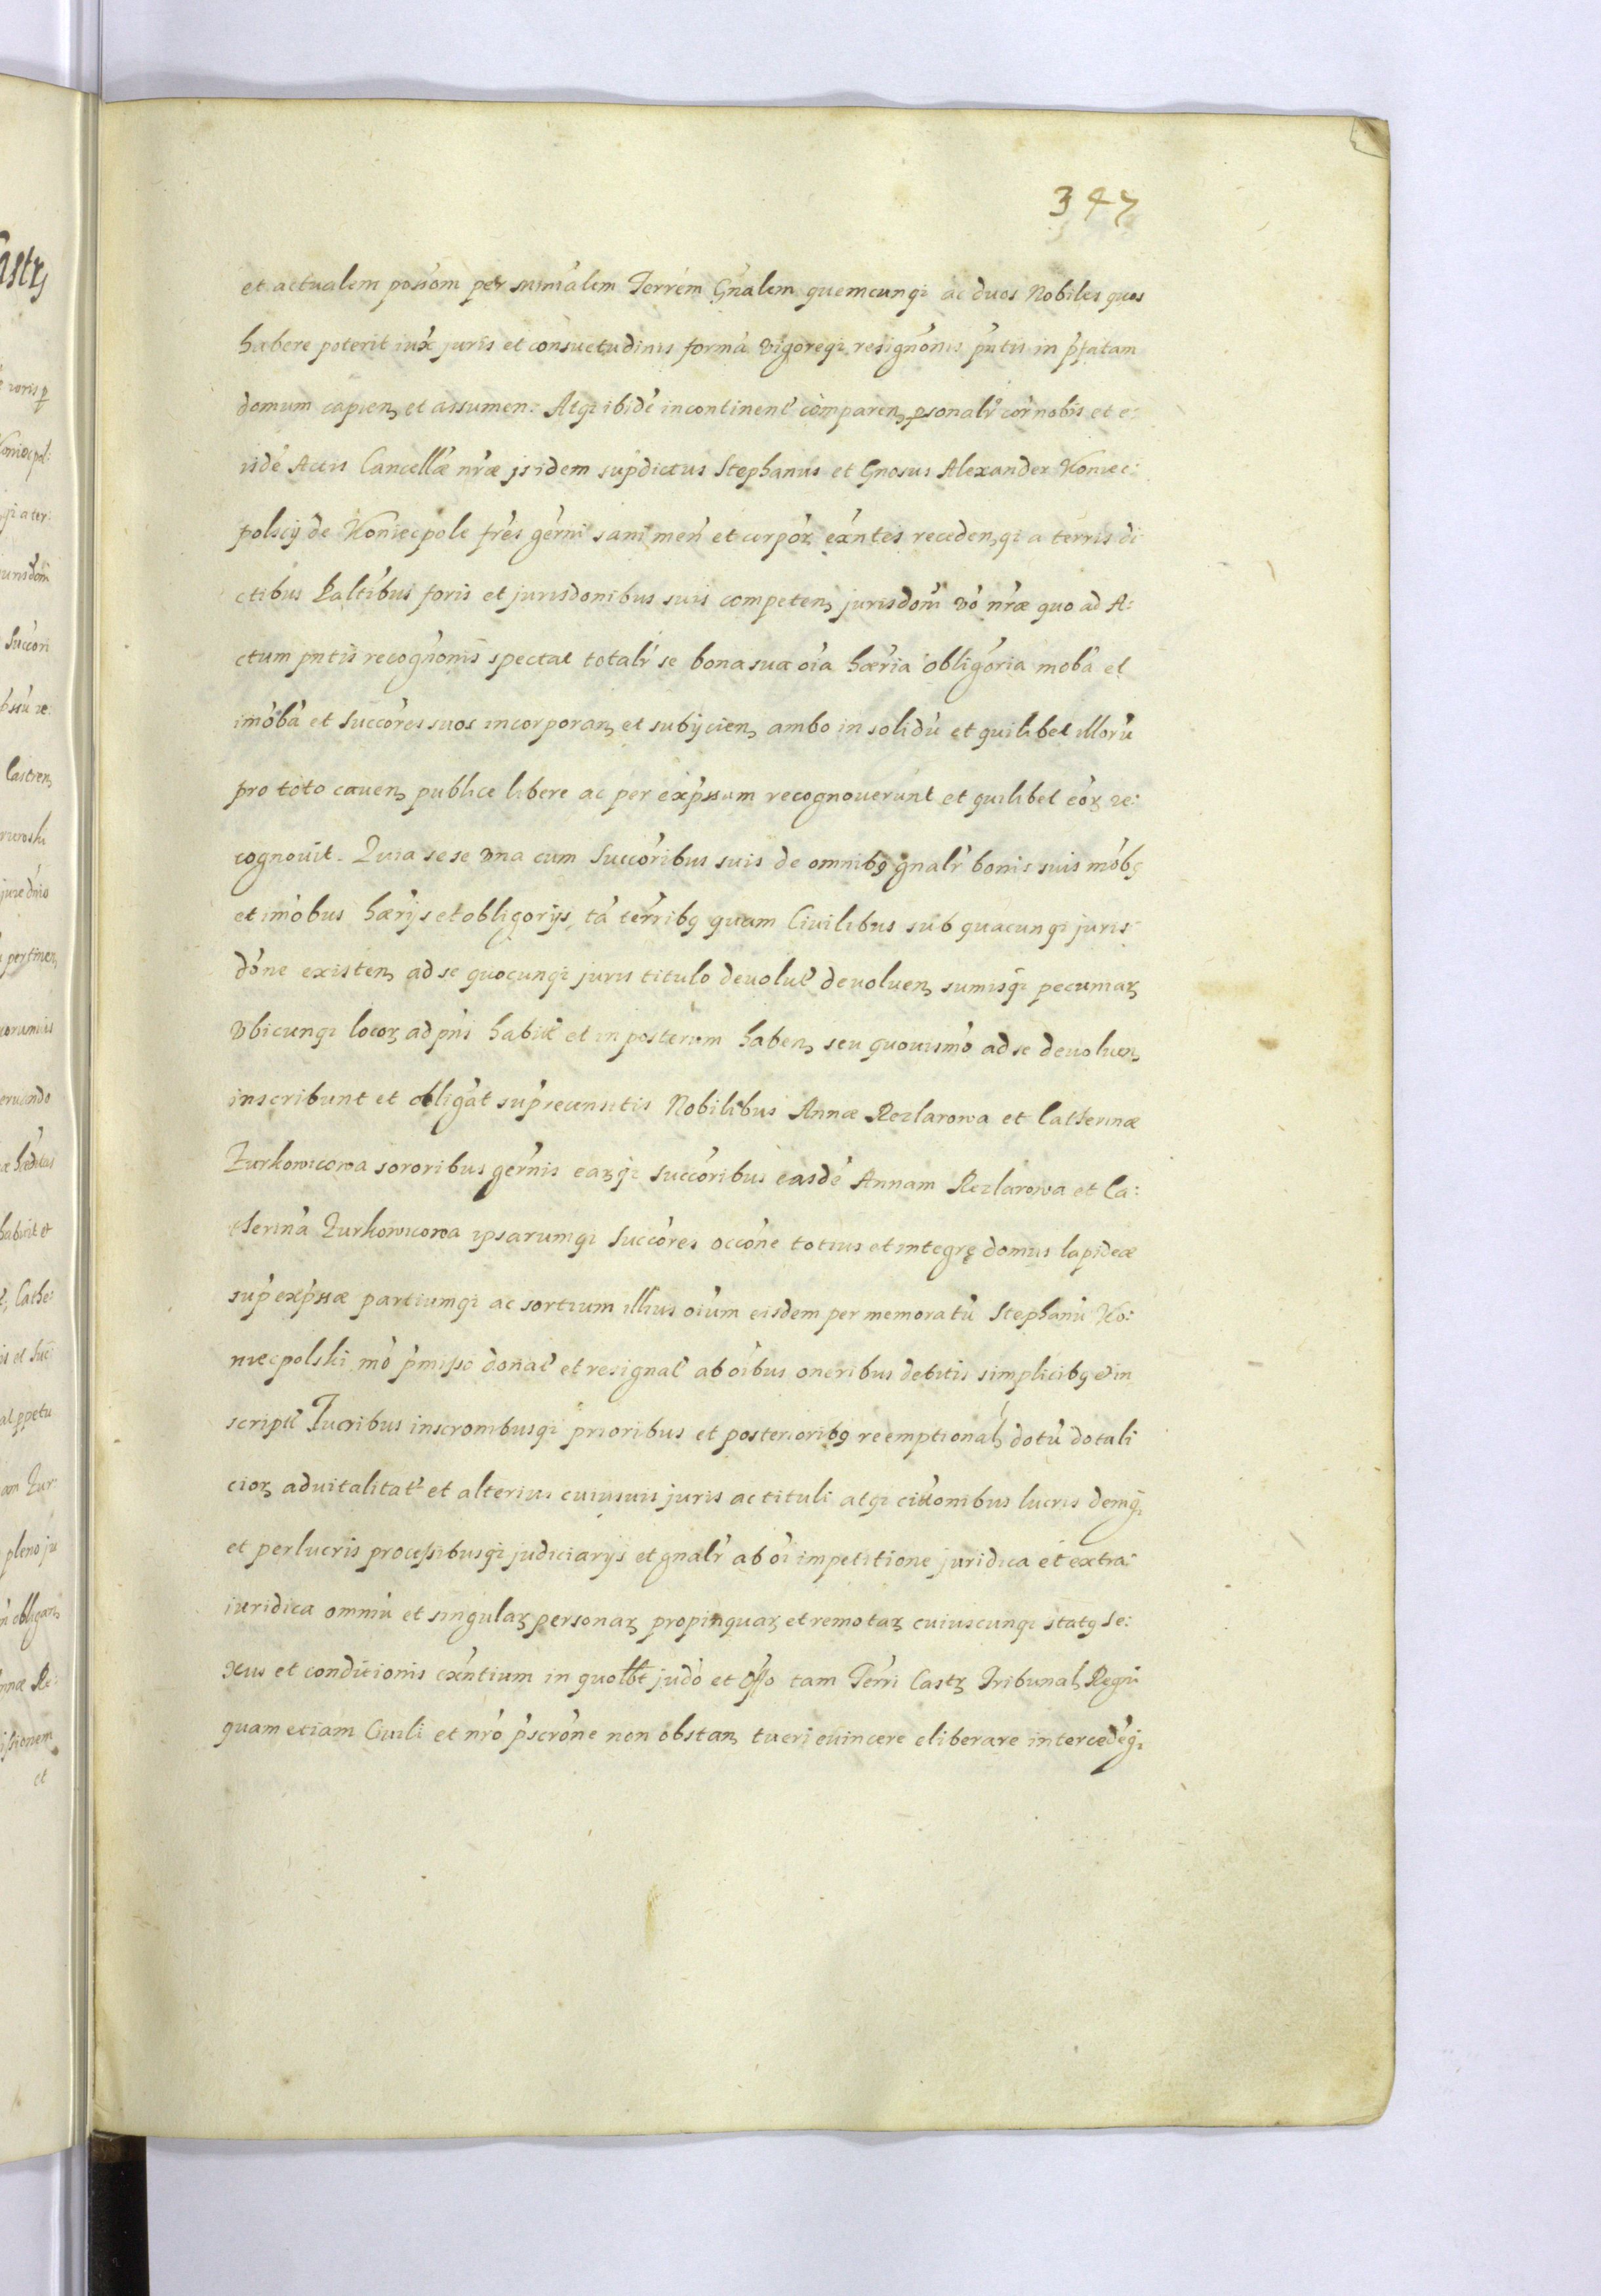 347
et actualem possiom per minalem Terrem Gnalem quemcunqi ac duos Nobiles quos
habere poterit iux juris et consuetudinis forma vigoreqi resignonis pntis in pfatam
domum capien et assumen: Atqi ibide incontinent comparen psonalr cor nobis et e:
isde Actis Cancellæ nræ jsidem supdictus Stephanus et Gnosus Alexander Koniec:
polscÿ de Koniecpole frés gerni sani men et corpor exntes receden,qi a terris di
ctibus Paltibus foris et jurisdonibus suis competen jurisdom vo nræ quo ad A:
ctum pntis recognonis spectat totalr se bona sua oia hæria obligoria moba et
imoba et Succores suos incorporan et subÿcien ambo in solidu et quilibet illoru
pro toto caven publice libere ac per expssum recognoverunt et quilibet eor re:
cognovit. Quia sese vna cum Succoribus suis de omnibq gnalr bonis suis mobq
et imobus hærÿs et obligorÿs, ta terribq quam Civilibus sub quacunqi juris
done existen ad se quocunqi juris titulo devolut devolven sumisqi pecuniar
vbicunqi locor ad pns habit et in posterum haben seu quovismo ad se devolven
inscribunt et obligat suprecensitis Nobilibus Annæ Rezlarowa et Catherinæ
Zurkowicowa sororibus gernis earqi Succoribus easde Annam Rezlarowa et Ca:
therina Zurkowicowa ipsarumqi Succores occone totius et integrę domus lapideæ
sup expssæ partiumqi ac sortium illius oium eisdem per memoratu Stephanu Ko:
niecpolski mo pmisso donat et resignat ab oibus oneribus debitis simplicibq et in
script Jucribus inscronibusqi prioribus et posterioribq reemptional dotu dotali
cior advitalitat et alterius cuiusuis juris ac tituli atqi citionibus lucris deniqi
et perlucris processibusqi judiciarÿs et gnalr ab oi impetitione juridica et extra:
iuridica omniu et singular personar propinquar et remotar cuiuscunqi statq se:
xus et conditionis exntium in quolbt judo et Offo tam Terri Castr Tribunal Regni
quam etiam Civili et nro pscrone non obstan tueri evincere eliberare intercedeqi